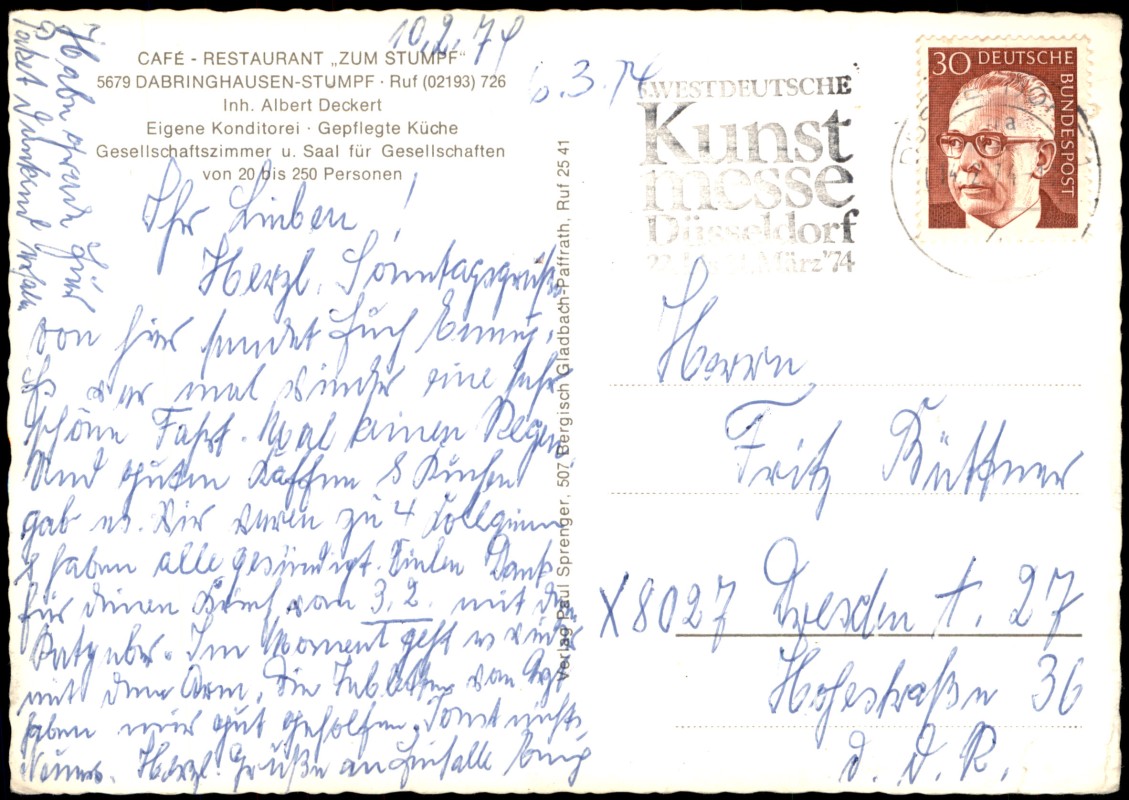 10.2.74
6.3.74
CAFÉ - RESTAURANT „ZUM STUMPF"
5679 DABRINGHAUSEN-STUMPF · Ruf (02193) 726
Inh. Albert Deckert
Eigene Konditorei · Gepflegte Küche
Gesellschaftszimmer u. Saal für Gesellschaften
von 20 bis 250 Personen
Ihr Lieben!
Herzl. Sonntagsgrüße
von hier sendet Euch
Es war mal wieder eine sehr
schöne Fahrt. Mal keinen Regen
Und guten Kaffee & Kuchen
gab es. Wir waren zu 4 Kolleginnen
& haben alle gesündigt. Vielen Dank
für Deinen Brief vom 3.2. mit dem
Ratgeber. Im Moment geht es wieder
mit dem Arm. Die Tabletten vom Arzt
haben mir gut geholfen. Sonst nichts
Neues. Herzl. Grüße an Euch alle
Habe gerade Euer
Paket dankend erhalten
Verlag Paul Sprenger, 507 Bergisch Gladbach-Paffrath, Ruf 25 41
WESTDEUTSCHE
Kunst
messe
Düsseldorf
März '74
30 DEUTSCHE
BUNDESPOST
a
Herrn
Fritz Büttner
X8027 Dresden A. 27
Hohestraße 36
D. D. R.